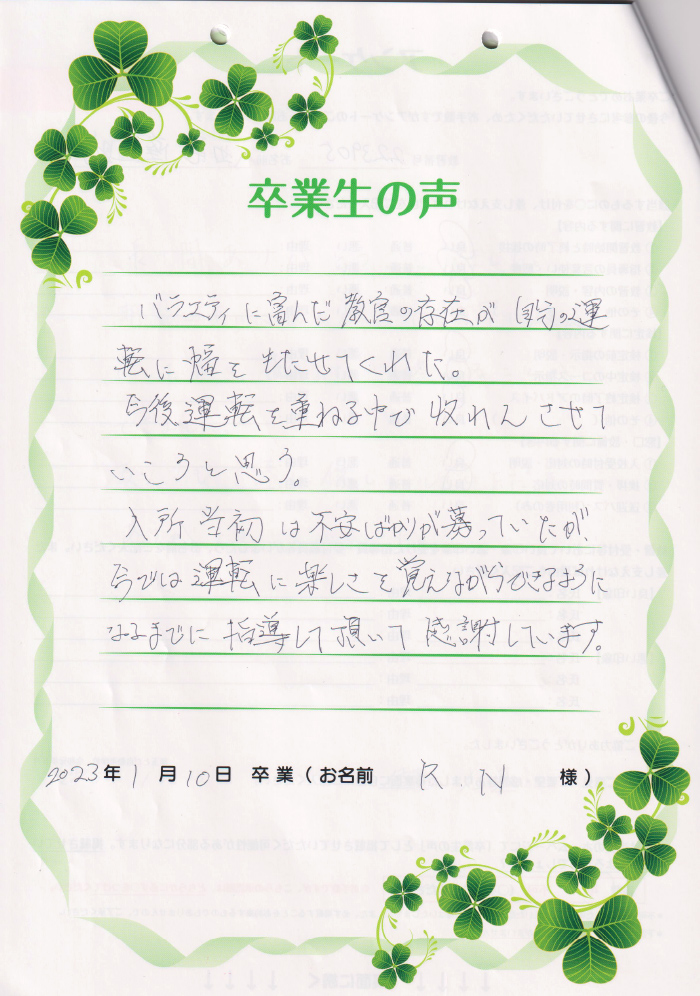 卒業生の声
バラエティに富んだ教官の存在が自分の運
転に幅をもたせてくれた。
今後運転を重ねる中で収れんさせて
いこうと思う。
入所当初は不安ばかりが募っていたが
今では運転に楽しさを覚えながらできるように
なるまでに指導して頂いて感謝しています。
2023年1月10日 卒業(お名前 R.N 様)